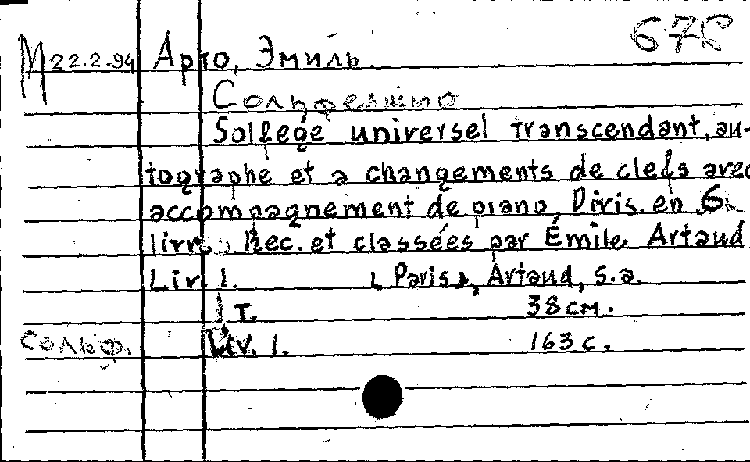 678
М 22.2-94 Арто, Эмиль.
Сольфеджио
Solfege universel transcendant, au-
tographe et a changements de clefs avec
accompagnement de piano, Divis. en 6
livres Rec. et classées par Émile Artaud
Liv 1. Paris, Artaud, s.a.
1 т. 38 см.
Сольф. Liv. 1. 163 с.